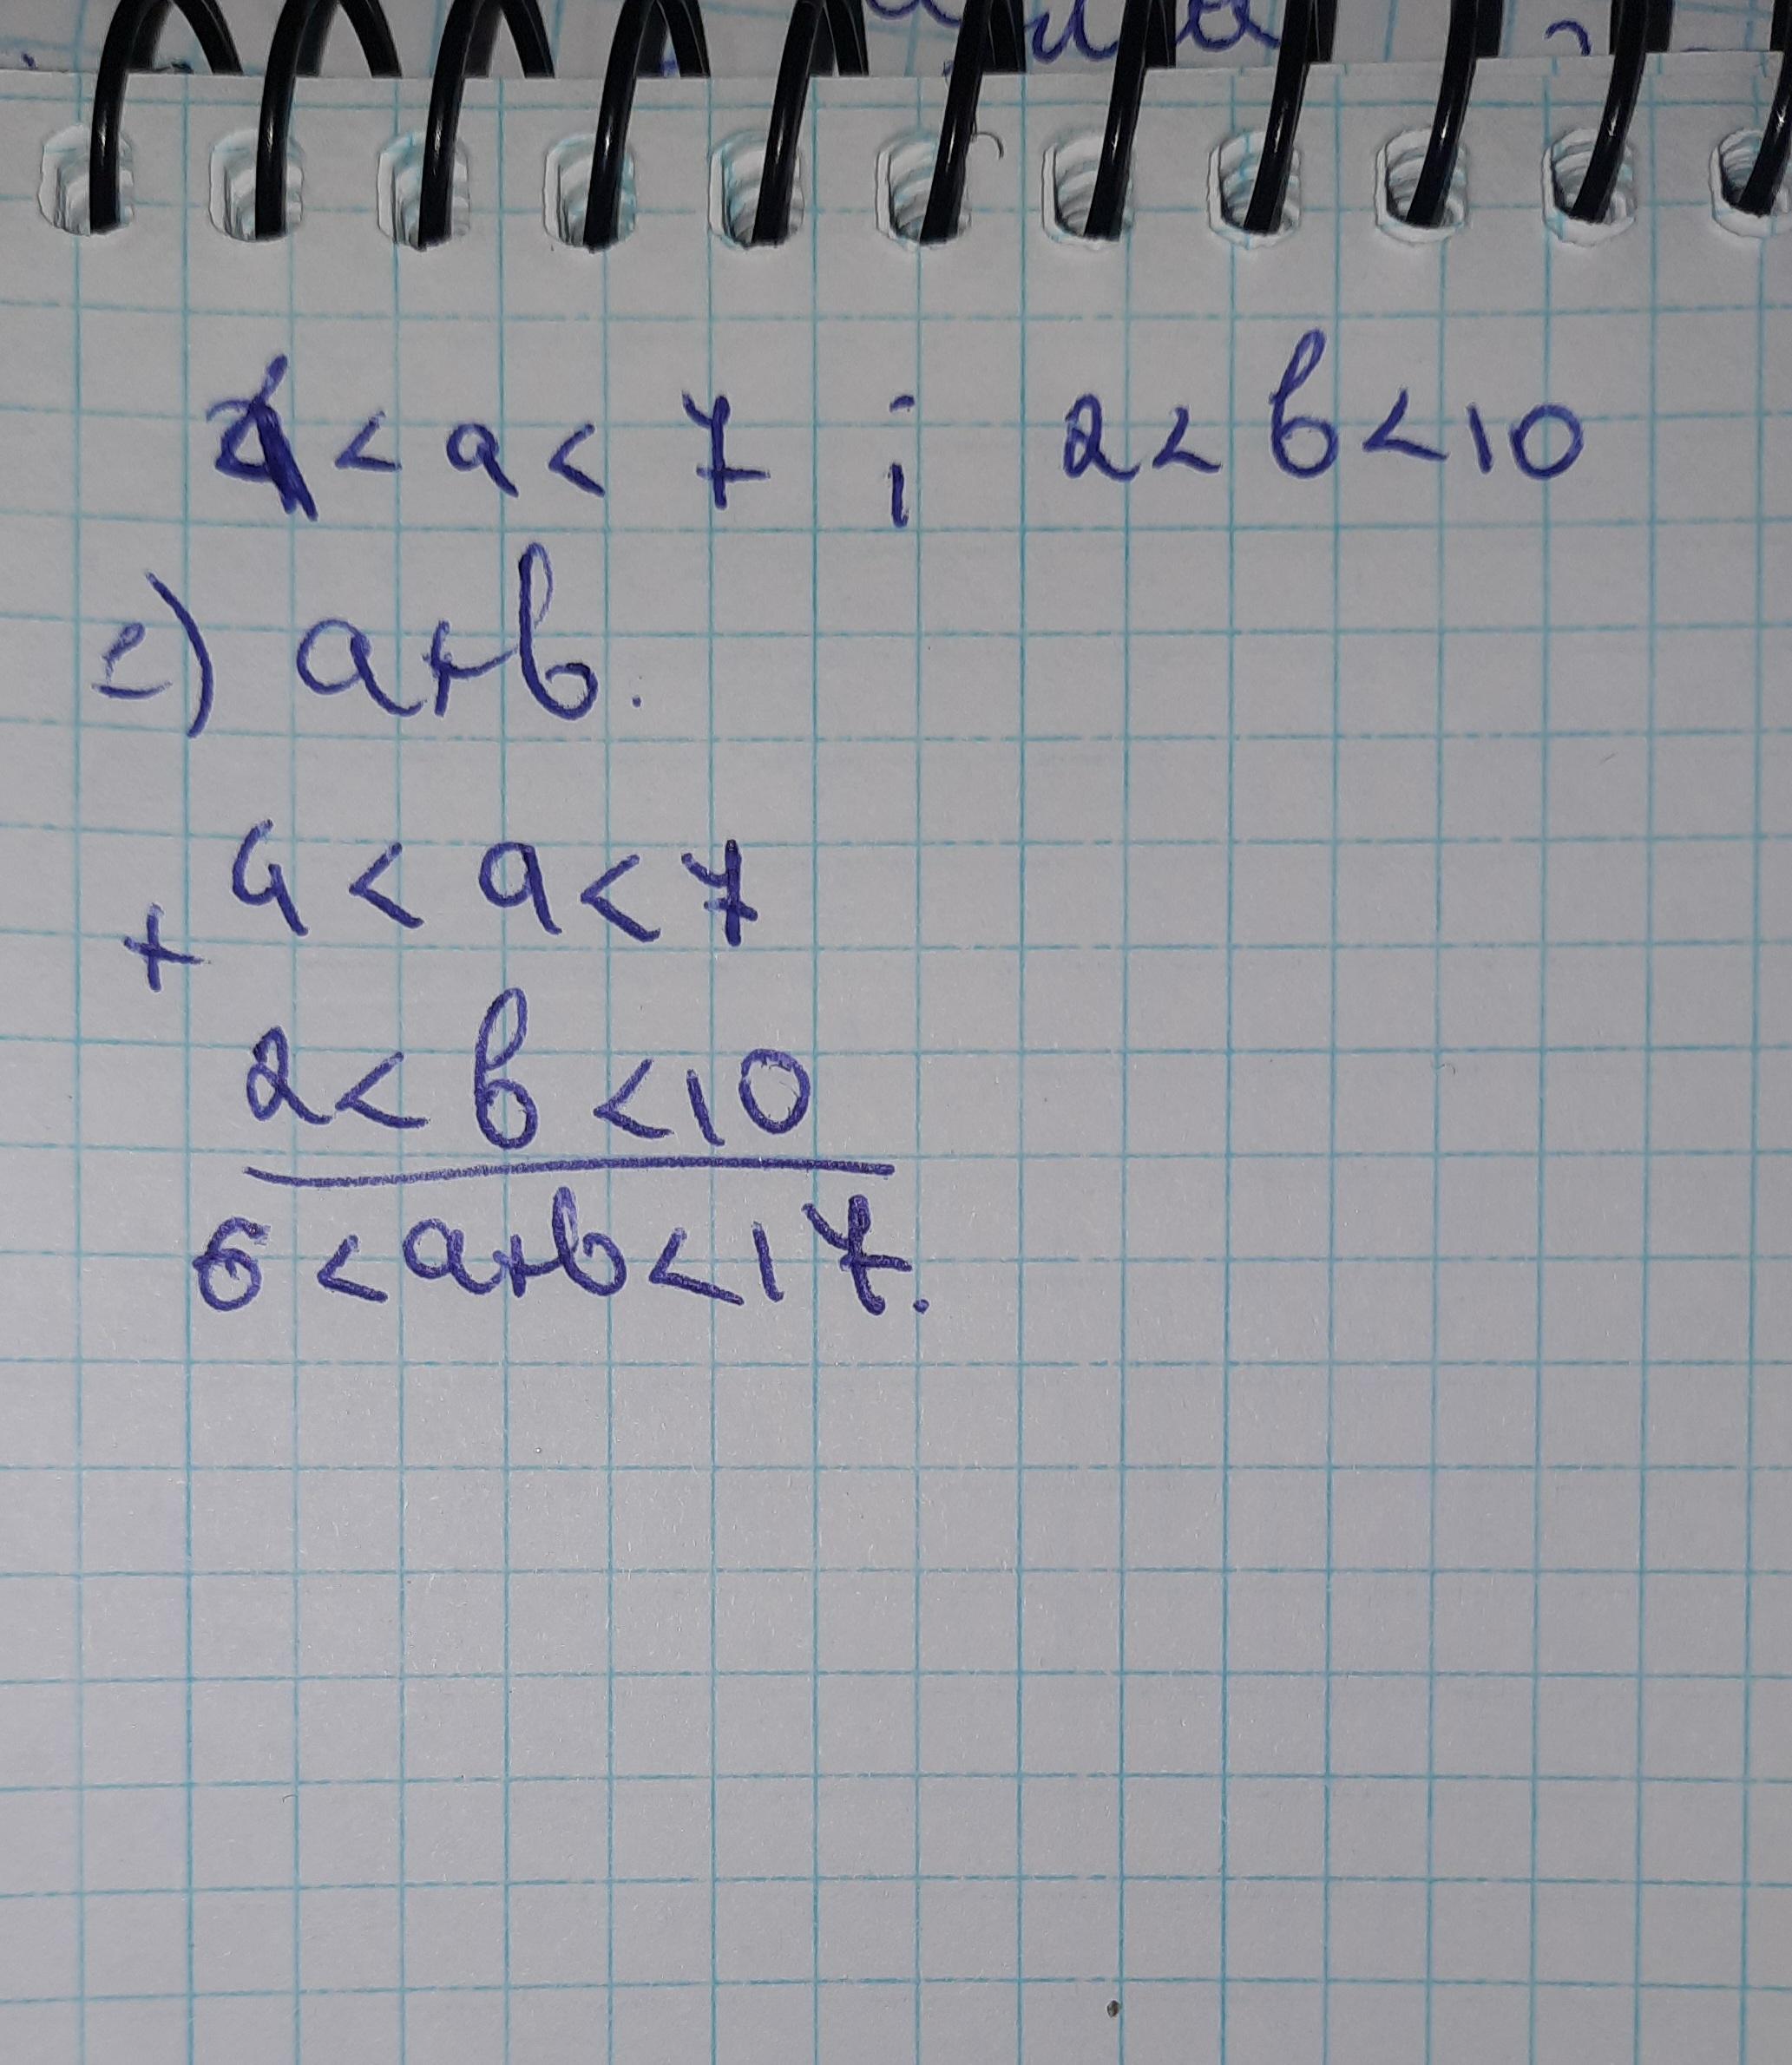 4 < a < 7 ; 2 < b < 10
1) a+b.
4 < a < 7
+
2 < b < 10
6 < a+b < 17.